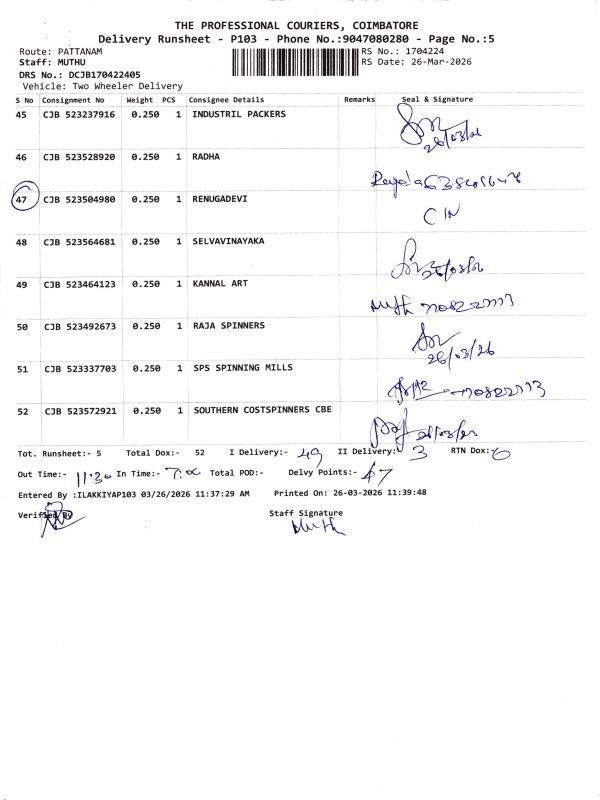 THE PROFESSIONAL COURIERS, COIMBATORE
Delivery Runsheet - P103 - Phone No.:9047080280 - Page No.:5
Route: PATTANAM
RS No.: 1704224
Staff: MUTHU
RS Date: 26-Mar-2026
DRS No.: DCJB170422405
Vehicle: Two Wheeler Delivery
S No Consignment No Weight PCS Consignee Details Remarks Seal & Signature
45 CJB 523237916 0.250 1 INDUSTRIL PACKERS
46 CJB 523528920 0.250 1 RADHA
47 CJB 523504980 0.250 1 RENUGADEVI
48 CJB 523564681 0.250 1 SELVAVINAYAKA
49 CJB 523464123 0.250 1 KANNAL ART
50 CJB 523492673 0.250 1 RAJA SPINNERS 26/03/26
51 CJB 523337703 0.250 1 SPS SPINNING MILLS
52 CJB 523572921 0.250 1 SOUTHERN COSTSPINNERS CBE
Tot. Runsheet:- 5 Total Dox:- 52 I Delivery:- 49 II Delivery:- 3 RTN Dox:-
Out Time:- 11:30 In Time:- 7:00 Total POD:- Delvy Points:- 47
Entered By :ILAKKIYAP103 03/26/2026 11:37:29 AM Printed On: 26-03-2026 11:39:48
Verified By Staff Signature
Muth